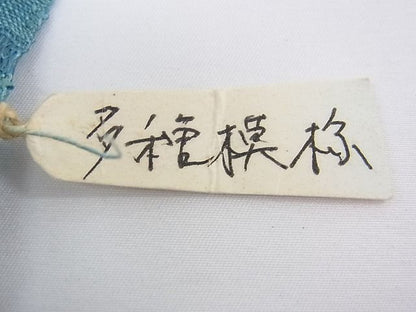 多種模様